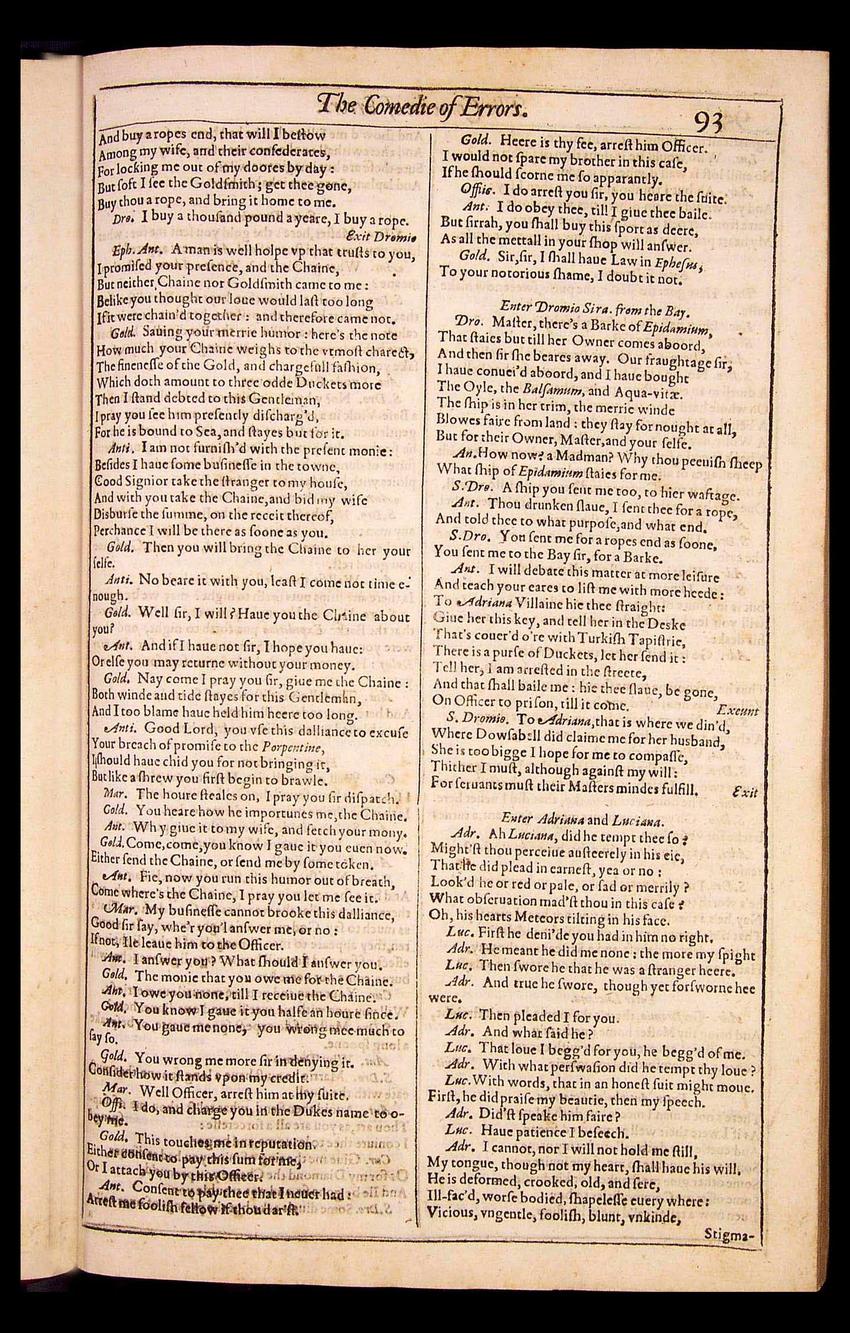 The Comedie of Errors.
93
And buy a ropes end, that will I beſtow
Among my wife, and their confederates,
For locking me out of my doores by day :
But ſoft I ſee the Goldſmith ; get thee gone,
Buy thou a rope, and bring it home to me.
Dro. I buy a thouſand pound a yeare, I buy a rope.
Exit Dromio
Eph. Ant. A man is well holpe vp that truſts to you,
I promiſed your preſence, and the Chaine,
But neither Chaine nor Goldſmith came to me :
Belike you thought our loue would laſt too long
If it were chain'd together : and therefore came not.
Gold. Sauing your merrie humor : here's the note
How much your Chaine weighs to the vtmoſt charect,
The fineneſſe of the Gold, and chargefull faſhion,
Which doth amount to three odde Duckets more
Then I ſtand debted to this Gentleman,
I pray you ſee him preſently diſcharg'd,
For he is bound to Sea, and ſtayes but for it.
Anti. I am not furniſh'd with the preſent monie :
Beſides I haue ſome buſineſſe in the towne,
Good Signior take the ſtranger to my houſe,
And with you take the Chaine, and bid my wife
Disburſe the ſumme, on the receit thereof,
Perchance I will be there as ſoone as you.
Gold. Then you will bring the Chaine to her your
ſelfe.
Anti. No beare it with you, leaſt I come not time e-
nough.
Gold. Well ſir, I will ? Haue you the Chaine about
you?
Ant. And if I haue not ſir, I hope you haue:
Or elſe you may returne without your money.
Gold. Nay come I pray you ſir, giue me the Chaine :
Both winde and tide ſtayes for this Gentleman,
And I too blame haue held him heere too long.
Anti. Good Lord, you vſe this dalliance to excuſe
Your breach of promiſe to the Porpentine,
I ſhould haue chid you for not bringing it,
But like a ſhrew you firſt begin to brawle.
Mar. The houre ſteales on, I pray you ſir diſpatch.
Gold. You heare how he importunes me, the Chaine.
Ant. Why giue it to my wife, and fetch your mony.
Gold. Come, come, you know I gaue it you euen now.
Either ſend the Chaine, or ſend me by ſome token.
Ant. Fie, now you run this humor out of breath,
Come where's the Chaine, I pray you let me ſee it.
Mar. My buſineſſe cannot brooke this dalliance,
Good ſir ſay, whe'r you'l anſwer me, or no :
If not, Ile leaue him to the Officer.
Ant. I anſwer you ? What ſhould I anſwer you.
Gold. The monie that you owe me for the Chaine.
Ant. I owe you none, till I receiue the Chaine.
Gold. You know I gaue it you halfe an houre ſince.
Ant. You gaue me none, you wrong mee much to
ſay ſo.
Gold. You wrong me more ſir in denying it.
Conſider how it ſtands vpon my credit.
Mar. Well Officer, arreſt him at my ſuite.
Offi. I do, and charge you in the Dukes name to o-
bey me.
Gold. This touches me in reputation.
Either conſent to pay this ſum for me,
Or I attach you by this Officer.
Ant. Conſent to pay thee that I neuer had :
Arreſt me fooliſh fellow if thou dar'ſt.
Gold. Heere is thy fee, arreſt him Officer.
I would not ſpare my brother in this caſe,
If he ſhould ſcorne me ſo apparantly.
Offic. I do arreſt you ſir, you heare the ſuite.
Ant. I do obey thee, till I giue thee baile.
But ſirrah, you ſhall buy this ſport as deere,
As all the mettall in your ſhop will anſwer.
Gold. Sir, ſir, I ſhall haue Law in Epheſus,
To your notorious ſhame, I doubt it not.
Enter Dromio Sira. from the Bay.
Dro. Maſter, there's a Barke of Epidamium,
That ſtaies but till her Owner comes aboord,
And then ſir ſhe beares away. Our fraughtage ſir,
I haue conuei'd aboord, and I haue bought
The Oyle, the Balſamum, and Aqua-vitæ.
The ſhip is in her trim, the merrie winde
Blowes faire from land : they ſtay for nought at all,
But for their Owner, Maſter, and your ſelfe.
An. How now ? a Madman? Why thou peeuiſh ſheep
What ſhip of Epidamium ſtaies for me.
S.Dro. A ſhip you ſent me too, to hier waftage.
Ant. Thou drunken ſlaue, I ſent thee for a rope,
And told thee to what purpoſe, and what end.
S.Dro. You ſent me for a ropes end as ſoone,
You ſent me to the Bay ſir, for a Barke.
Ant. I will debate this matter at more leiſure
And teach your eares to liſt me with more heede :
To Adriana Villaine hie thee ſtraight:
Giue her this key, and tell her in the Deske
That's couer'd o're with Turkiſh Tapiſtrie,
There is a purſe of Duckets, let her ſend it :
Tell her, I am arreſted in the ſtreete,
And that ſhall baile me : hie thee ſlaue, be gone,
On Officer to priſon, till it come.
Exeunt
S. Dromio. To Adriana, that is where we din'd,
Where Dowſabell did claime me for her husband,
She is too bigge I hope for me to compaſſe,
Thither I muſt, although againſt my will :
For ſeruants muſt their Maſters mindes fulfill.
Exit
Enter Adriana and Luciana.
Adr. Ah Luciana, did he tempt thee ſo ?
Might'ſt thou perceiue auſteerely in his eie,
That he did plead in earneſt, yea or no :
Look'd he or red or pale, or ſad or merrily ?
What obſeruation mad'ſt thou in this caſe ?
Oh, his hearts Meteors tilting in his face.
Luc. Firſt he deni'de you had in him no right.
Adr. He meant he did me none : the more my ſpight
Luc. Then ſwore he that he was a ſtranger heere.
Adr. And true he ſwore, though yet forſworne hee
were.
Luc. Then pleaded I for you.
Adr. And what ſaid he ?
Luc. That loue I begg'd for you, he begg'd of me.
Adr. With what perſwaſion did he tempt thy loue ?
Luc. With words, that in an honeſt ſuit might moue.
Firſt, he did praiſe my beautie, then my ſpeech.
Adr. Did'ſt ſpeake him faire ?
Luc. Haue patience I beſeech.
Adr. I cannot, nor I will not hold me ſtill,
My tongue, though not my heart, ſhall haue his will.
He is deformed, crooked, old, and ſere,
Ill-fac'd, worſe bodied, ſhapeleſſe euery where :
Vicious, vngentle, fooliſh, blunt, vnkinde,
Stigma-